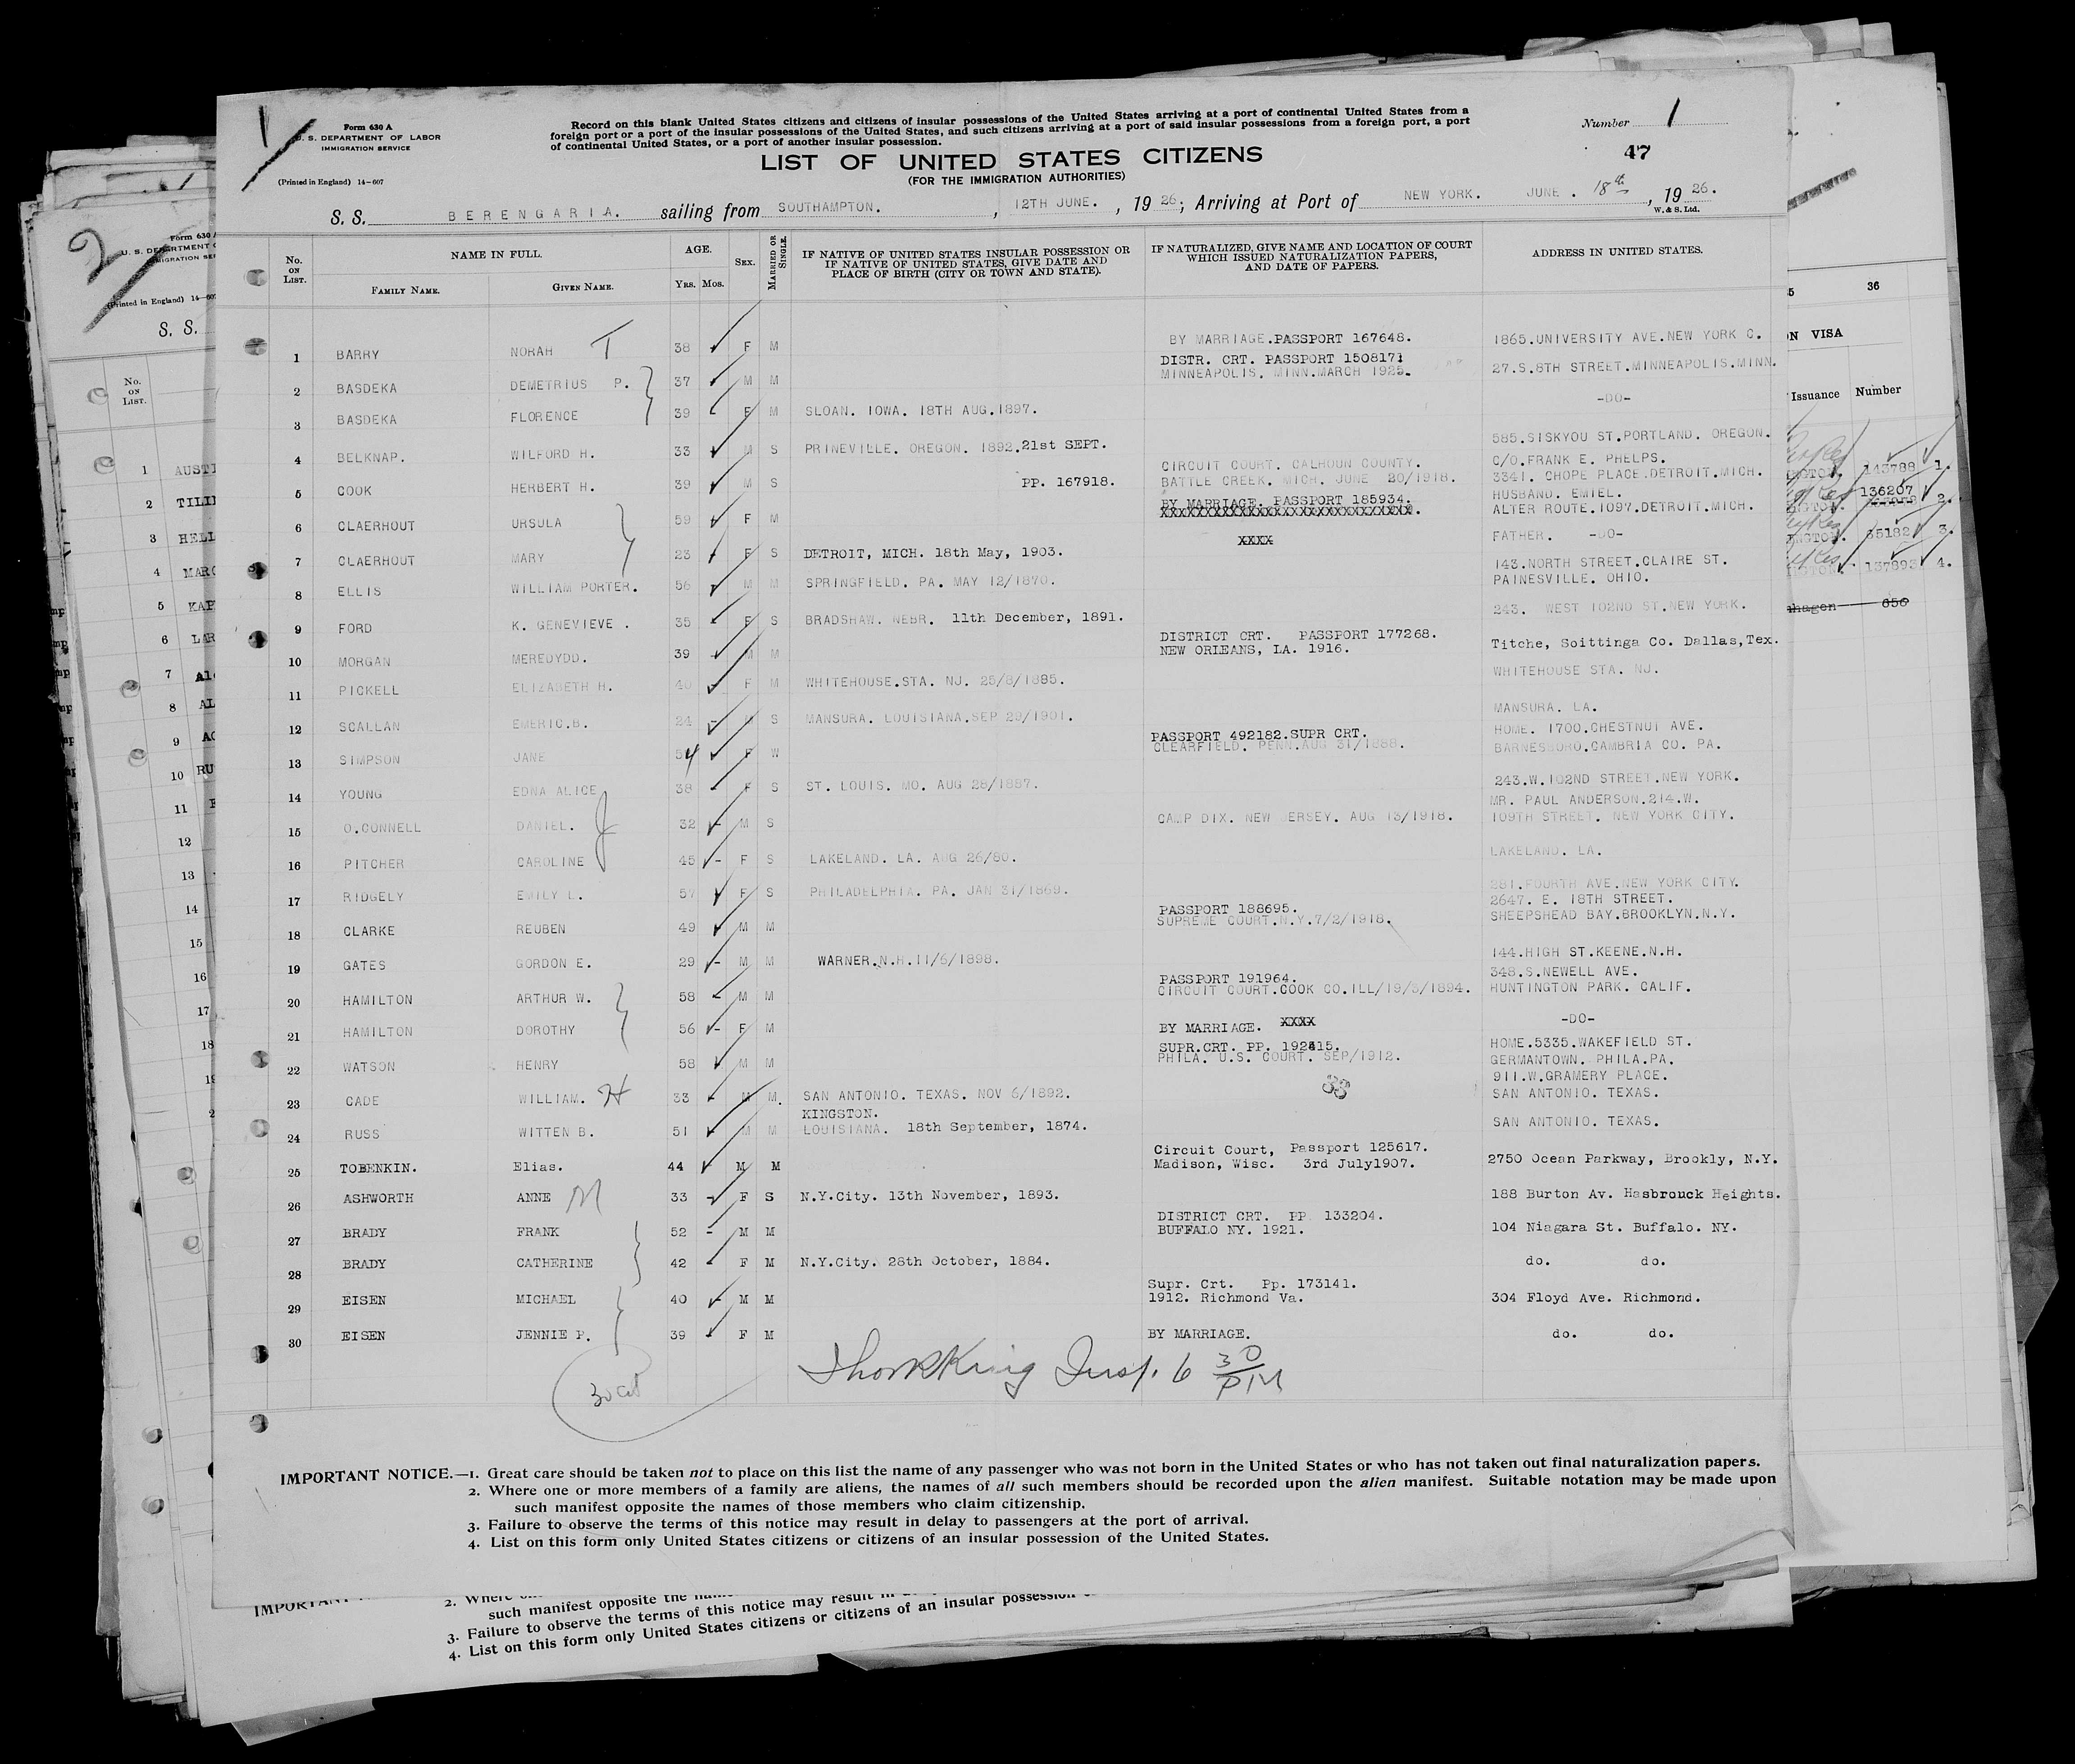 Form 630 A
U. S. DEPARTMENT OF LABOR
IMMIGRATION SERVICE
(Printed in England) 14-607
Record on this blank United States citizens and citizens of insular possessions of the United States arriving at a port of continental United States from a
foreign port or a port of the insular possessions of the United States, and such citizens arriving at a port of said insular possessions from a foreign port, a port
of continental United States, or a port of another insular possession.
LIST OF UNITED STATES CITIZENS
(FOR THE IMMIGRATION AUTHORITIES)
Number 1
47
S. S. BERENGARIA. sailing from SOUTHAMPTON. , 12TH JUNE. , 19 26; Arriving at Port of NEW YORK. JUNE . 18th , 19 26.
W. & S. Ltd.
No. ON LIST.
NAME IN FULL.
FAMILY NAME. GIVEN NAME.
AGE.
Yrs. Mos.
SEX.
MARRIED OR SINGLE.
IF NATIVE OF UNITED STATES INSULAR POSSESSION OR
IF NATIVE OF UNITED STATES, GIVE DATE AND
PLACE OF BIRTH (CITY OR TOWN AND STATE).
IF NATURALIZED, GIVE NAME AND LOCATION OF COURT
WHICH ISSUED NATURALIZATION PAPERS,
AND DATE OF PAPERS.
ADDRESS IN UNITED STATES.
1 BARRY NORAH T 38 F M BY MARRIAGE.PASSPORT 167648. 1865.UNIVERSITY AVE.NEW YORK C.
DISTR. CRT. PASSPORT 1508171
2 BASDEKA DEMETRIUS P. 37 M M MINNEAPOLIS. MINN.MARCH 1925. 27.S.8TH STREET.MINNEAPOLIS.MINN.
3 BASDEKA FLORENCE 39 F M SLOAN. IOWA. 18TH AUG.1897. -DO-
585.SISKYOU ST.PORTLAND. OREGON.
4 BELKNAP. WILFORD H. 33 M S PRINEVILLE. OREGON. 1892.21st SEPT. C/O.FRANK E. PHELPS.
CIRCUIT COURT. CALHOUN COUNTY.
5 COOK HERBERT H. 39 M S PP. 167918. BATTLE CREEK. MICH. JUNE 20/1918. 3341. CHOPE PLACE.DETROIT.MICH.
HUSBAND. EMIEL.
6 CLAERHOUT URSULA 59 F M BY MARRIAGE. PASSPORT 185934. ALTER ROUTE.1097.DETROIT.MICH.
XXXX
7 CLAERHOUT MARY 23 F S DETROIT, MICH. 18th May, 1903. FATHER. -DO-
143.NORTH STREET.CLAIRE ST.
8 ELLIS WILLIAM PORTER. 56 M M SPRINGFIELD. PA. MAY 12/1870. PAINESVILLE. OHIO.
9 FORD K. GENEVIEVE . 35 F S BRADSHAW. NEBR. 11th December, 1891. 243. WEST 102ND ST.NEW YORK.
DISTRICT CRT. PASSPORT 177268.
10 MORGAN MEREDYDD. 39 M M NEW ORLEANS, LA. 1916. Titche, Soittinga Co. Dallas,Tex.
11 PICKELL ELIZABETH H. 40 F M WHITEHOUSE.STA. NJ. 25/8/1885. WHITEHOUSE STA. NJ.
12 SCALLAN EMERIC.B. 24 M S MANSURA. LOUISIANA.SEP 20/1901. MANSURA. LA.
PASSPORT 492182.SUPR CRT. HOME. 1700.CHESTNUT AVE.
13 SIMPSON JANE 54 F W CLEARFIELD. PENN.AUG 31/1888. BARNESBORO.CAMBRIA CO. PA.
14 YOUNG EDNA ALICE J 38 F S ST. LOUIS. MO. AUG 28/1887. 243.W.102ND STREET.NEW YORK.
MR. PAUL ANDERSON.214.W.
15 O.CONNELL DANIEL. 32 M S CAMP DIX. NEW JERSEY. AUG 13/1918. 109TH STREET. NEW YORK CITY.
16 PITCHER CAROLINE 45 F S LAKELAND. LA. AUG 26/80. LAKELAND. LA.
17 RIDGELY EMILY L. 57 F S PHILADELPHIA. PA. JAN 31/1869. 281.FOURTH AVE.NEW YORK CITY.
PASSPORT 188695. 2647. E. 18TH STREET.
18 CLARKE REUBEN 49 M M SUPREME COURT.N.Y.7/2/1918. SHEEPSHEAD BAY.BROOKLYN.N.Y.
19 GATES GORDON E. 29 M M WARNER.N.H.11/6/1898. 144.HIGH ST.KEENE.N.H.
PASSPORT 191964. 348.S.NEWELL AVE.
20 HAMILTON ARTHUR W. 58 M M CIRCUIT COURT.COOK CO.ILL/19/3/1894. HUNTINGTON PARK. CALIF.
21 HAMILTON DOROTHY 56 F M BY MARRIAGE. XXXX -DO-
SUPR.CRT. PP. 192415. HOME.5335.WAKEFIELD ST.
22 WATSON HENRY 58 M M PHILA. U.S. COURT. SEP/1912. GERMANTOWN. PHILA.PA.
33 911.W.GRAMERY PLACE.
23 CADE WILLIAM. H 33 M M. SAN ANTONIO. TEXAS. NOV 6/1892. SAN ANTONIO. TEXAS.
KINGSTON.
24 RUSS WITTEN B. 51 M M LOUISIANA. 18th September, 1874. SAN ANTONIO. TEXAS.
Circuit Court, Passport 125617.
25 TOBENKIN. Elias. 44 M M Madison, Wisc. 3rd July1907. 2750 Ocean Parkway, Brookly, N.Y.
26 ASHWORTH ANNE M 33 F S N.Y.City. 13th November, 1893. 188 Burton Av. Hasbrouck Heights.
DISTRICT CRT. PP 133204.
27 BRADY FRANK 52 M M BUFFALO NY. 1921. 104 Niagara St. Buffalo. NY.
28 BRADY CATHERINE 42 F M N.Y.City. 28th October, 1884. do. do.
Supr. Crt. Pp. 173141.
29 EISEN MICHAEL 40 M M 1912. Richmond Va. 304 Floyd Ave. Richmond.
30 EISEN JENNIE P. 39 F M BY MARRIAGE. do. do.
Insp. 6 30 PM
IMPORTANT NOTICE.—1. Great care should be taken not to place on this list the name of any passenger who was not born in the United States or who has not taken out final naturalization papers.
2. Where one or more members of a family are aliens, the names of all such members should be recorded upon the alien manifest. Suitable notation may be made upon
such manifest opposite the names of those members who claim citizenship.
3. Failure to observe the terms of this notice may result in delay to passengers at the port of arrival.
4. List on this form only United States citizens or citizens of an insular possession of the United States.
such manifest opposite the
3. Failure to observe the terms of this notice may result in
4. List on this form only United States citizens or citizens of an insular possession
2
Form 630
(Printed in England) 14-607
S. S.
No. ON LIST.
1 AUST
2 TILI
3 HELL
4 MARG
5 KAP
6 LAR
7 Al
8 AL
9 AG
10 RU
11
12
13
14
15
16
17
18
36
VISA
Issuance Number
143788 1.
136207 2.
35182 3.
137893 4.
hagen 656